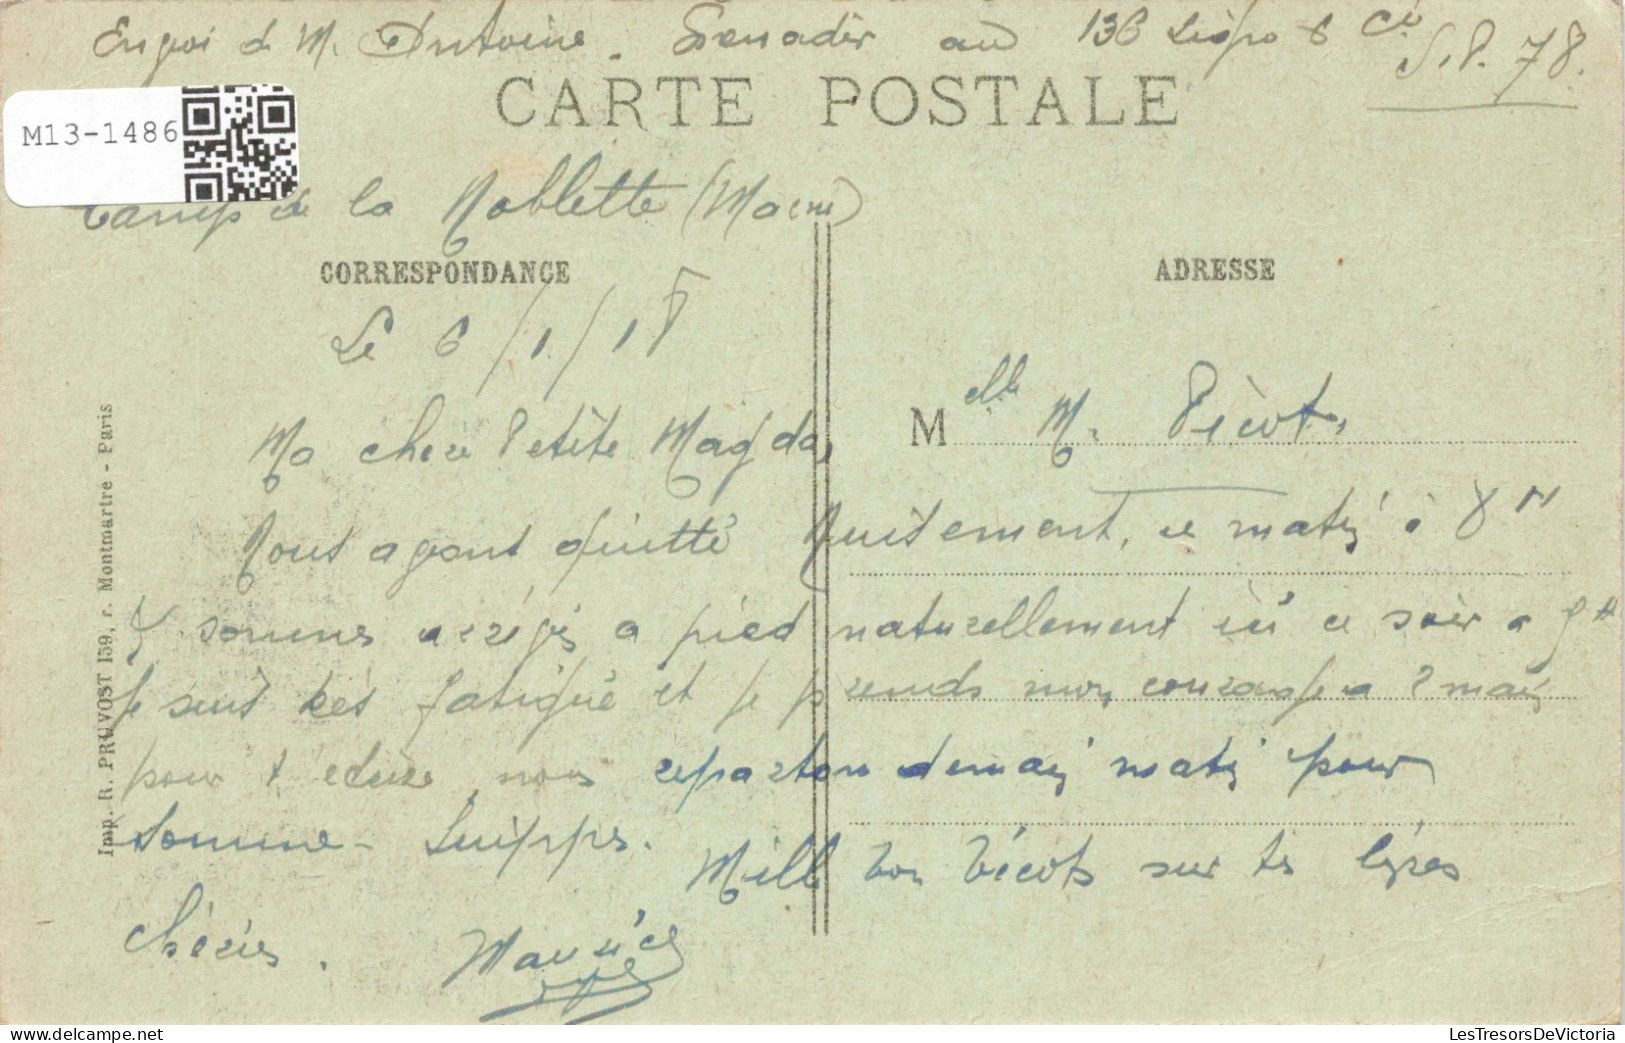 Envoi de M. Antoine. Grenadier au 136 6 Cie S.P. 78.
CARTE POSTALE
M13-1486
Camp de la Noblette (Marne)
CORRESPONDANCE
ADRESSE
Le 6/1/18
Melle M. Picot,
Ma chère Petite Magda,
Nous ayant quitté Nuisement, ce matin à 8 H
sommes arrivés a pied naturellement ici ce soir a
Je suis très fatigué et je prends mon courage a 2 mains
pour t nous repartons demain matin pour
Somme-Suippes.
Mille bon bécots sur tes lèvres
chéries.
Maurice
Imp. R. PRUVOST 159, r. Montmartre - Paris
LesTresorsDeVictoria.com
delcampe.net